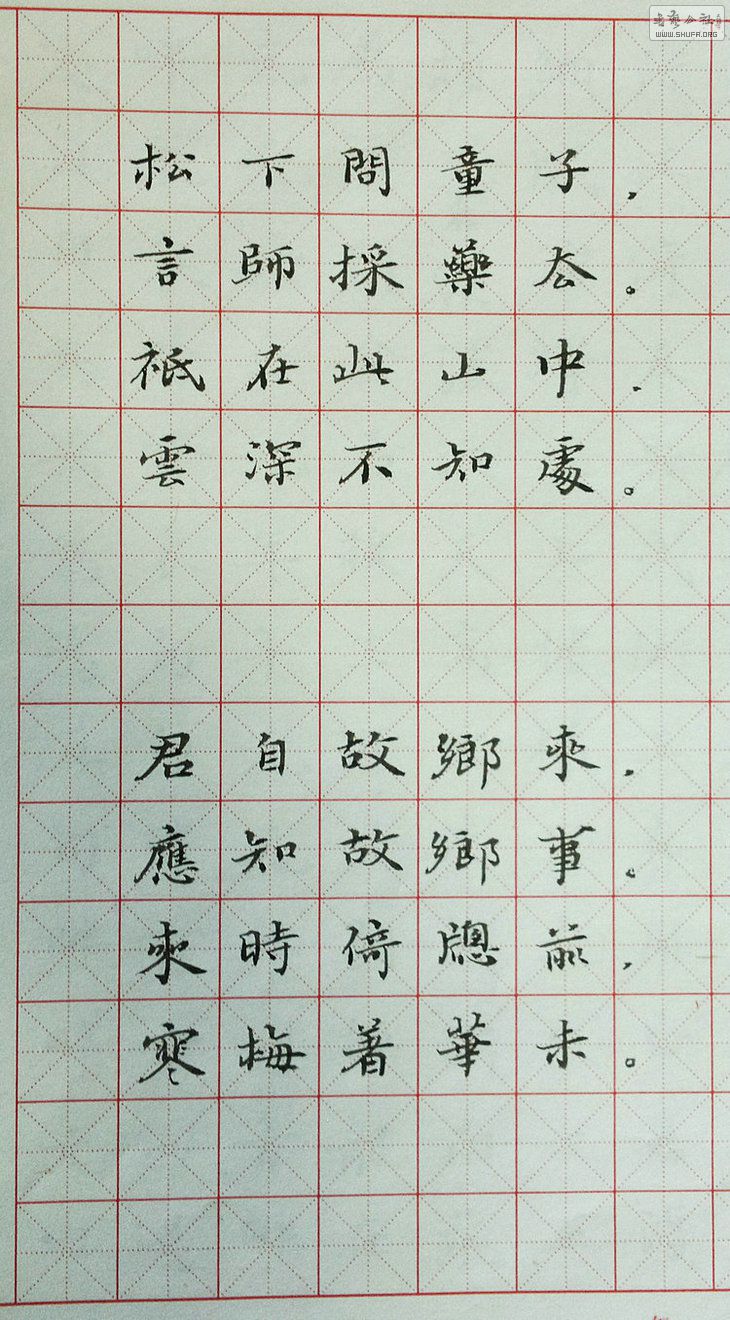 書藝公社
WWW.SHUFA.ORG
松下問童子，
言師採藥去。
祇在此山中．
雲深不知處。
君自故鄉來，
應知故鄉事。
來時倚牕前，
寒梅著華未。